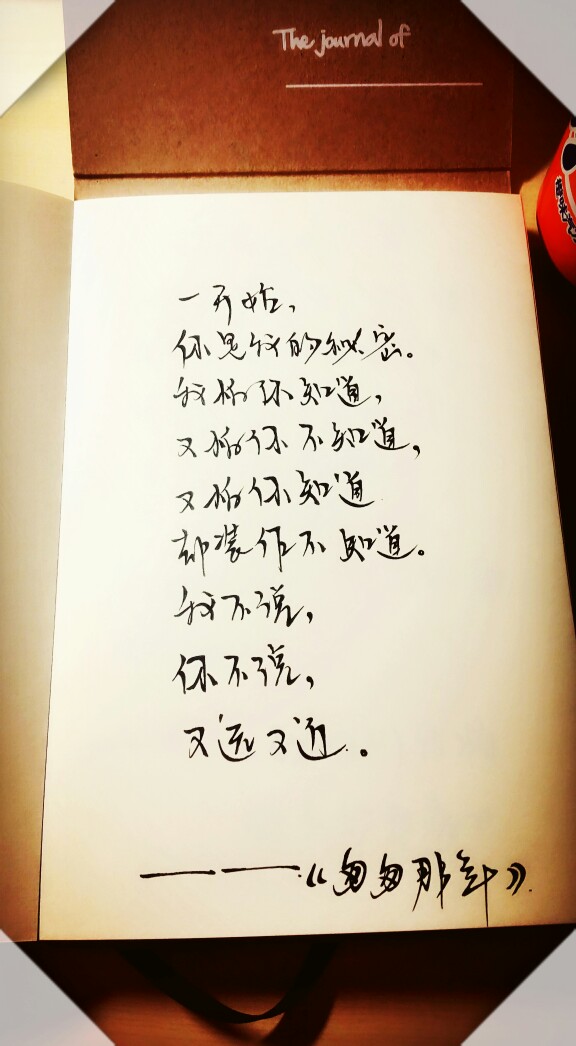 The journal of
一开始，
你是我的秘密。
我怕你知道，
又怕你不知道，
又怕你知道
却装作不知道。
我不说，
你不说，
又远又近。
——《匆匆那年》